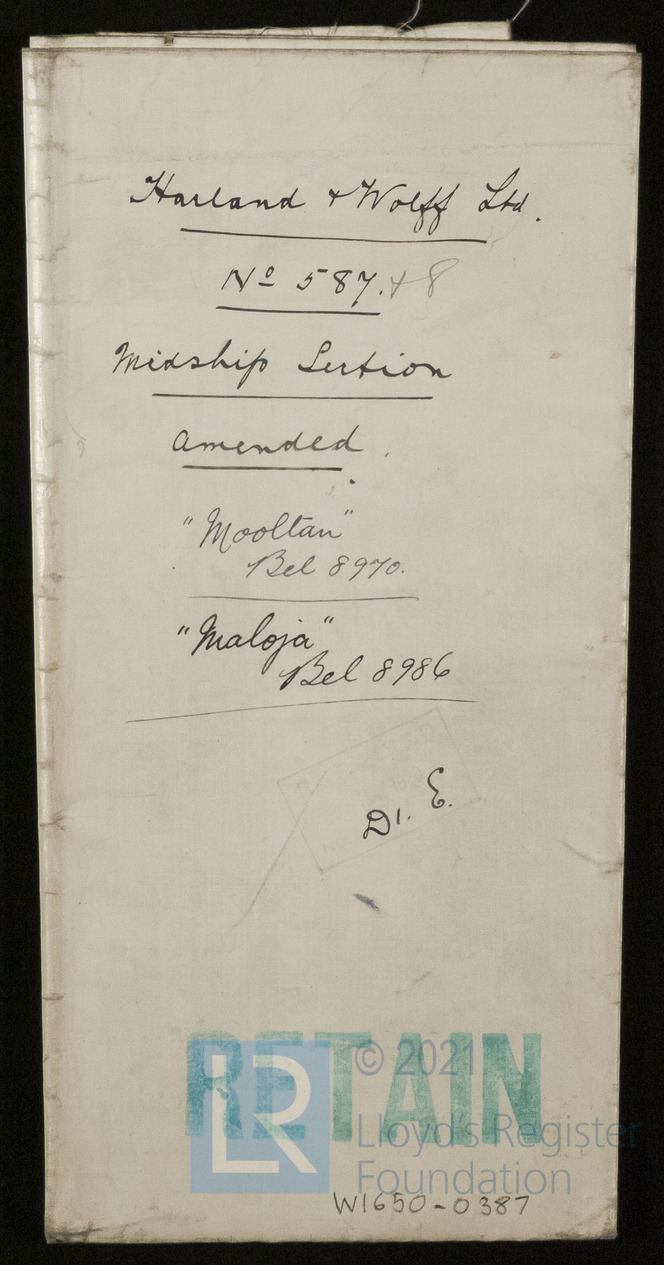 Harland & Wolff Ltd.
Nº 587. + 8
Midship Section
Amended.
"Mooltan"
Bel 8970.
"Maloja"
Bel 8986
D1. E.
RETAIN
LR
© 2021
Lloyd's Register
Foundation
W1650-0387